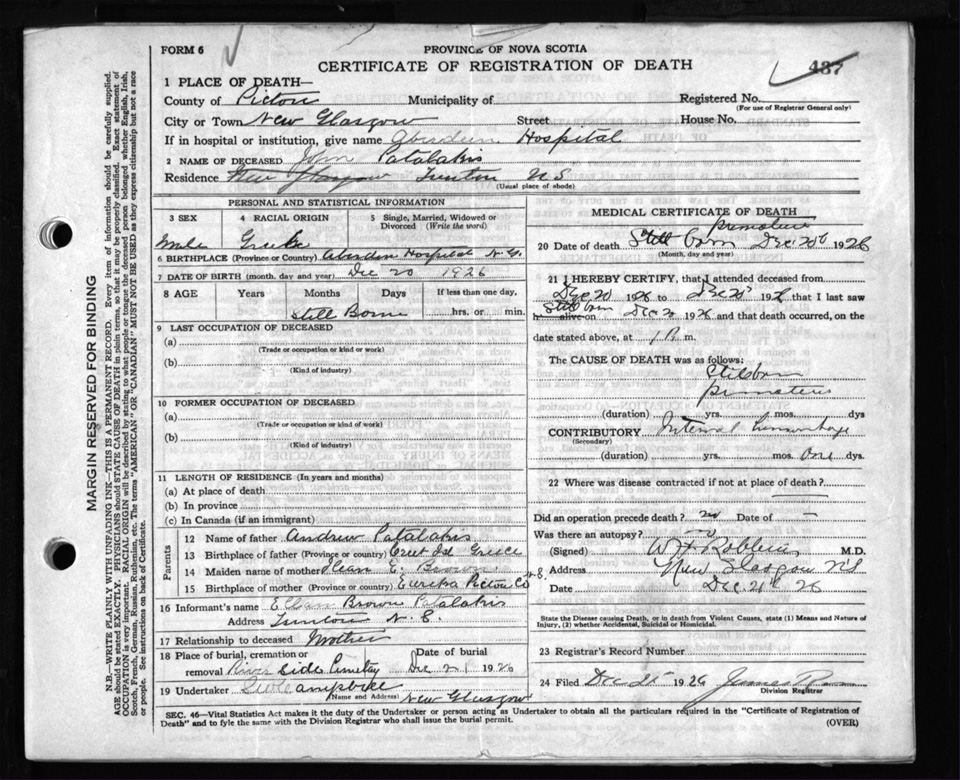 FORM 6
PROVINCE OF NOVA SCOTIA
CERTIFICATE OF REGISTRATION OF DEATH
437
1 PLACE OF DEATH—
County of Pictou Municipality of Registered No.
(For use of Registrar General only)
City or Town New Glasgow Street House No.
If in hospital or institution, give name Aberdeen Hospital
2 NAME OF DECEASED John Patalakis
Residence New Glasgow Trenton N S
(Usual place of abode)
PERSONAL AND STATISTICAL INFORMATION
3 SEX 4 RACIAL ORIGIN 5 Single, Married, Widowed or Divorced (Write the word)
Male Greek
6 BIRTHPLACE (Province or Country) Aberdeen Hospital N.G.
7 DATE OF BIRTH (month, day and year) Dec 20 1926
8 AGE Years Months Days If less than one day,
Still Born hrs. or min.
9 LAST OCCUPATION OF DECEASED
(a)
(Trade or occupation or kind or work)
(b)
(Kind of industry)
10 FORMER OCCUPATION OF DECEASED
(a)
(Trade or occupation or kind of work)
(b)
(Kind of industry)
11 LENGTH OF RESIDENCE (In years and months)
(a) At place of death
(b) In province
(c) In Canada (if an immigrant)
Parents
12 Name of father Andrew Patalakis
13 Birthplace of father (Province or country) Creet Isd Greece
14 Maiden name of mother E. Brown
15 Birthplace of mother (Province or country) Eureka Pictou Co N.S.
16 Informant's name Ellen Brown Patalakis
Address Trenton N. S.
17 Relationship to deceased Mother
18 Place of burial, cremation or removal River Side Cemetery Date of burial Dec 21 1926
19 Undertaker
(Name and Address) New Glasgow
MEDICAL CERTIFICATE OF DEATH
premature
20 Date of death Still born Dec 20th 1926
(Month, day and year)
21 I HEREBY CERTIFY, that I attended deceased from
Dec 20 1926 to Dec 20 1926 that I last saw
Still born
h alive on Dec 20 1926 and that death occurred, on the
date stated above, at 1 P. m.
The CAUSE OF DEATH was as follows:
Stillborn
premature
(duration) yrs. mos. dys
CONTRIBUTORY Internal hemorrhage
(Secondary)
(duration) yrs. mos. one dys.
22 Where was disease contracted if not at place of death?
Did an operation precede death? no Date of —
Was there an autopsy? no
(Signed) M.D.
Address New Glasgow N S
Date Dec 21st 26
State the Disease causing Death, or in death from Violent Causes, state (1) Means and Nature of Injury, (2) whether Accidental, Suicidal or Homicidal.
23 Registrar's Record Number
24 Filed Dec 21st 1926
Division Registrar
SEC. 46—Vital Statistics Act makes it the duty of the Undertaker or person acting as Undertaker to obtain all the particulars required in the "Certificate of Registration of
Death" and to fyle the same with the Division Registrar who shall issue the burial permit. (OVER)
MARGIN RESERVED FOR BINDING
N.B.—WRITE PLAINLY WITH UNFADING INK—THIS IS A PERMANENT RECORD. Every item of information should be carefully supplied.
AGE should be stated EXACTLY. PHYSICIANS should STATE CAUSE OF DEATH in plain terms, so that it may be properly classified. Exact statement of
OCCUPATION is very important. RACIAL ORIGIN will be described by stating to what people or tongue the deceased person belonged whether English, Irish,
Scotch, French, German, Russian, Ruthenian, etc. The terms "AMERICAN" OR "CANADIAN" MUST NOT BE USED as they express citizenship but not a race
or people. See instructions on back of Certificate.